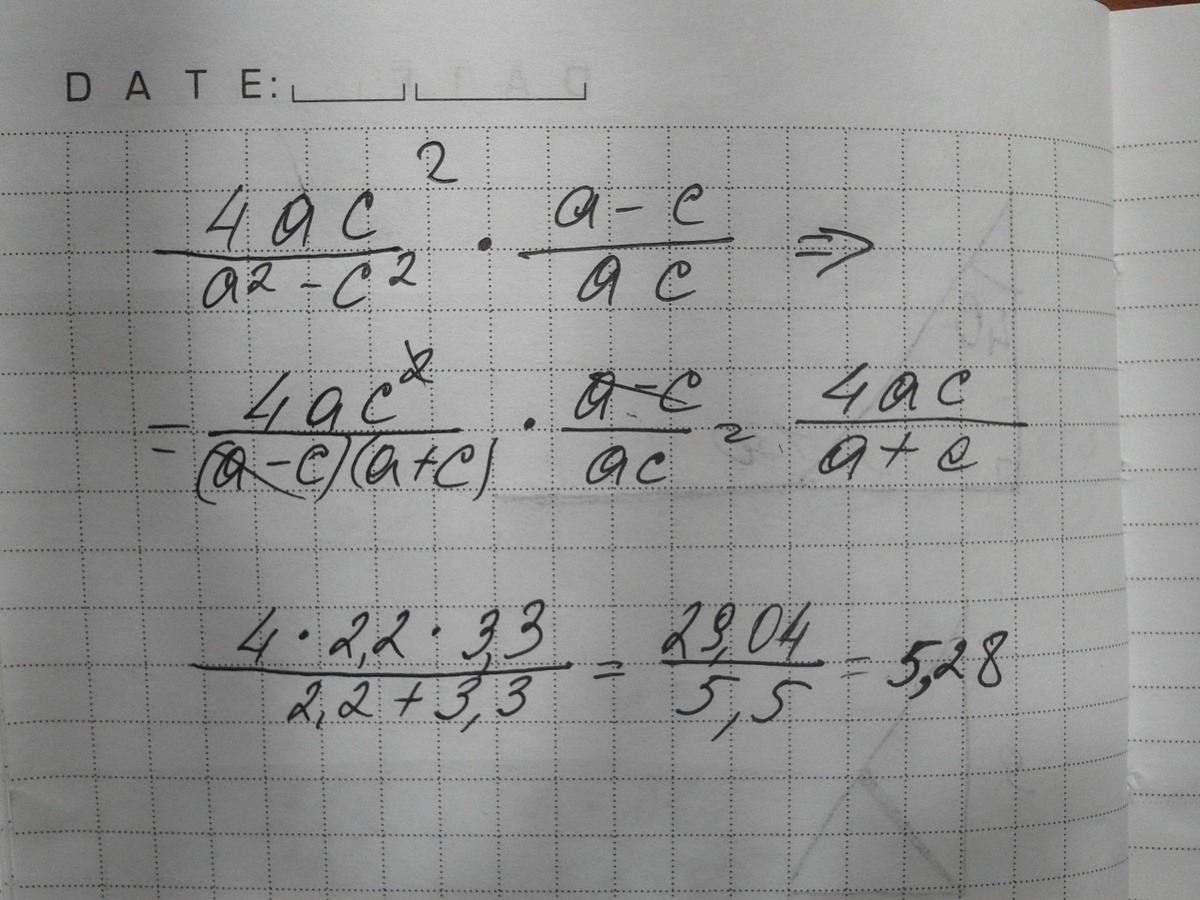 DATE:
4ac² / (a² - c²) · (a - c) / (ac) ⇒
= 4ac² / ((a - c)(a + c)) · (a - c) / (ac) = 4ac / (a + c)
(4 · 2,2 · 3,3) / (2,2 + 3,3) = 29,04 / 5,5 = 5,28